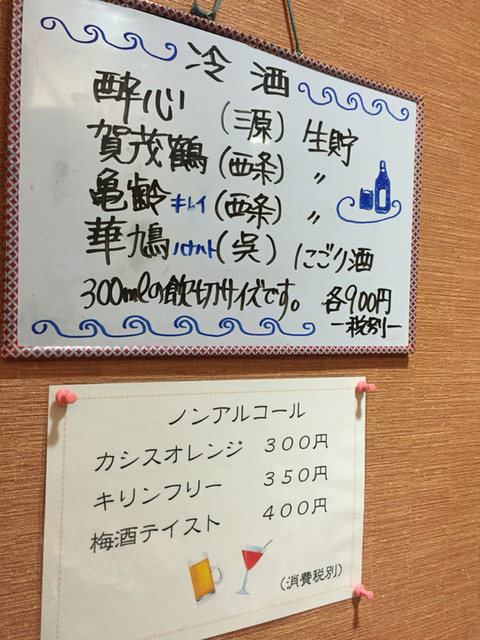 冷酒
酔心 (三原) 生貯
賀茂鶴 (西条) 〃
亀齢 キレイ (西条) 〃
華鳩 ハナハト (呉) にごり酒
300mlの飲切サイズです。 各900円
ー税別ー
ノンアルコール
カシスオレンジ 300円
キリンフリー 350円
梅酒テイスト 400円
(消費税別)